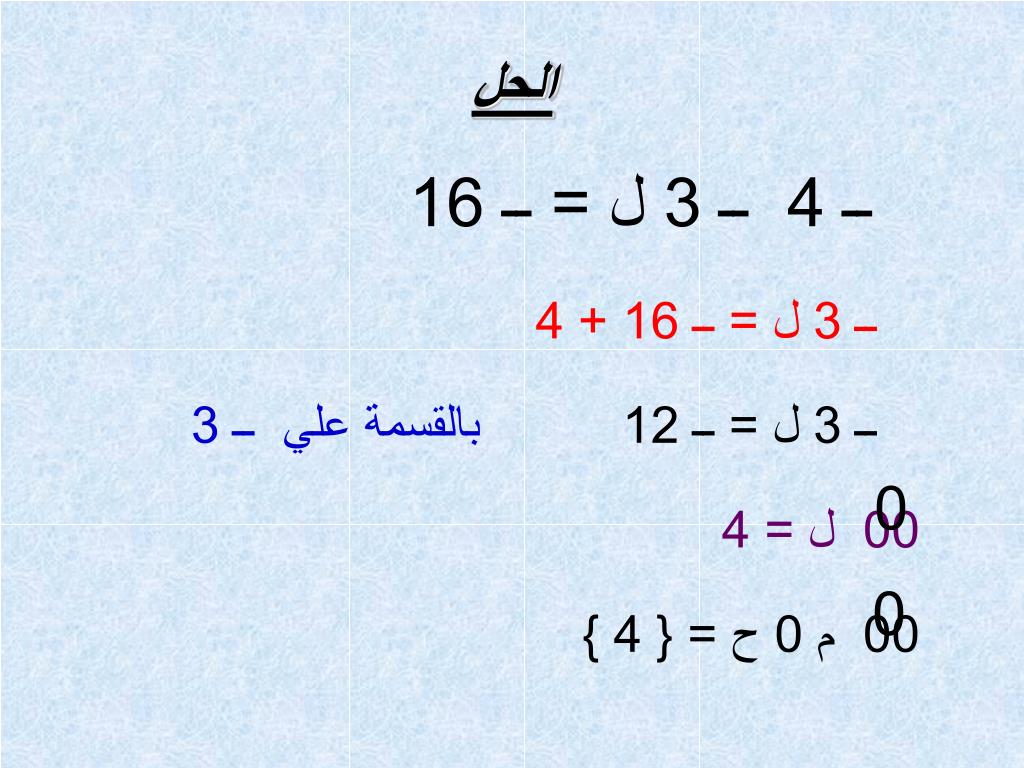 الحل
ــ 4 ــ 3 ل = ــ 16
ــ 3 ل = ــ 16 + 4
ــ 3 ل = ــ 12 بالقسمة علي ــ 3
0
00 ل = 4
0
00 م 0 ح = { 4 }